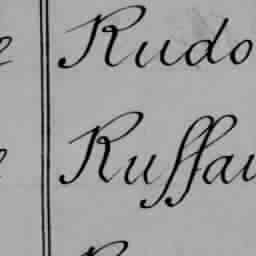 Rudo
Ruffau